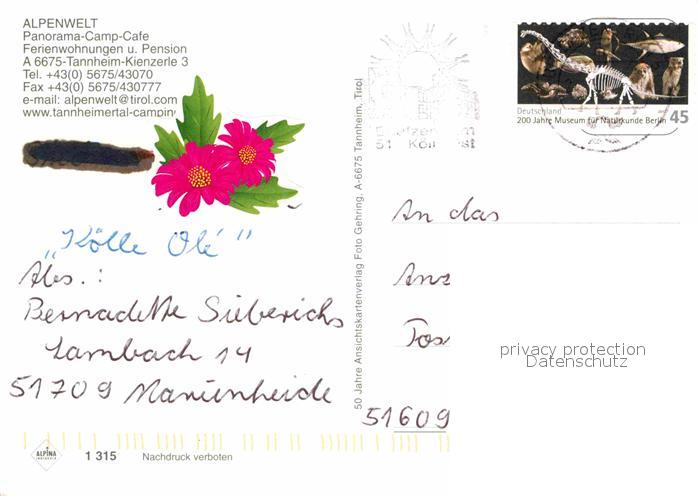 ALPENWELT
Panorama-Camp-Cafe
Ferienwohnungen u. Pension
A 6675-Tannheim-Kienzerle 3
Tel. +43(0) 5675/43070
Fax +43(0) 5675/430777
e-mail: alpenwelt@tirol.com
www.tannheimertal-camping
„Kölle Olé"
Abs.:
Bernadette Sieberichs
Lambach 14
51709 Marienheide
ALPINA
1 315
Nachdruck verboten
50 Jahre Ansichtskartenverlag Foto Gehring, A-6675 Tannheim, Tirol
Deutschland
200 Jahre Museum für Naturkunde Berlin
45
An das
Tos
51609
privacy protection
Datenschutz